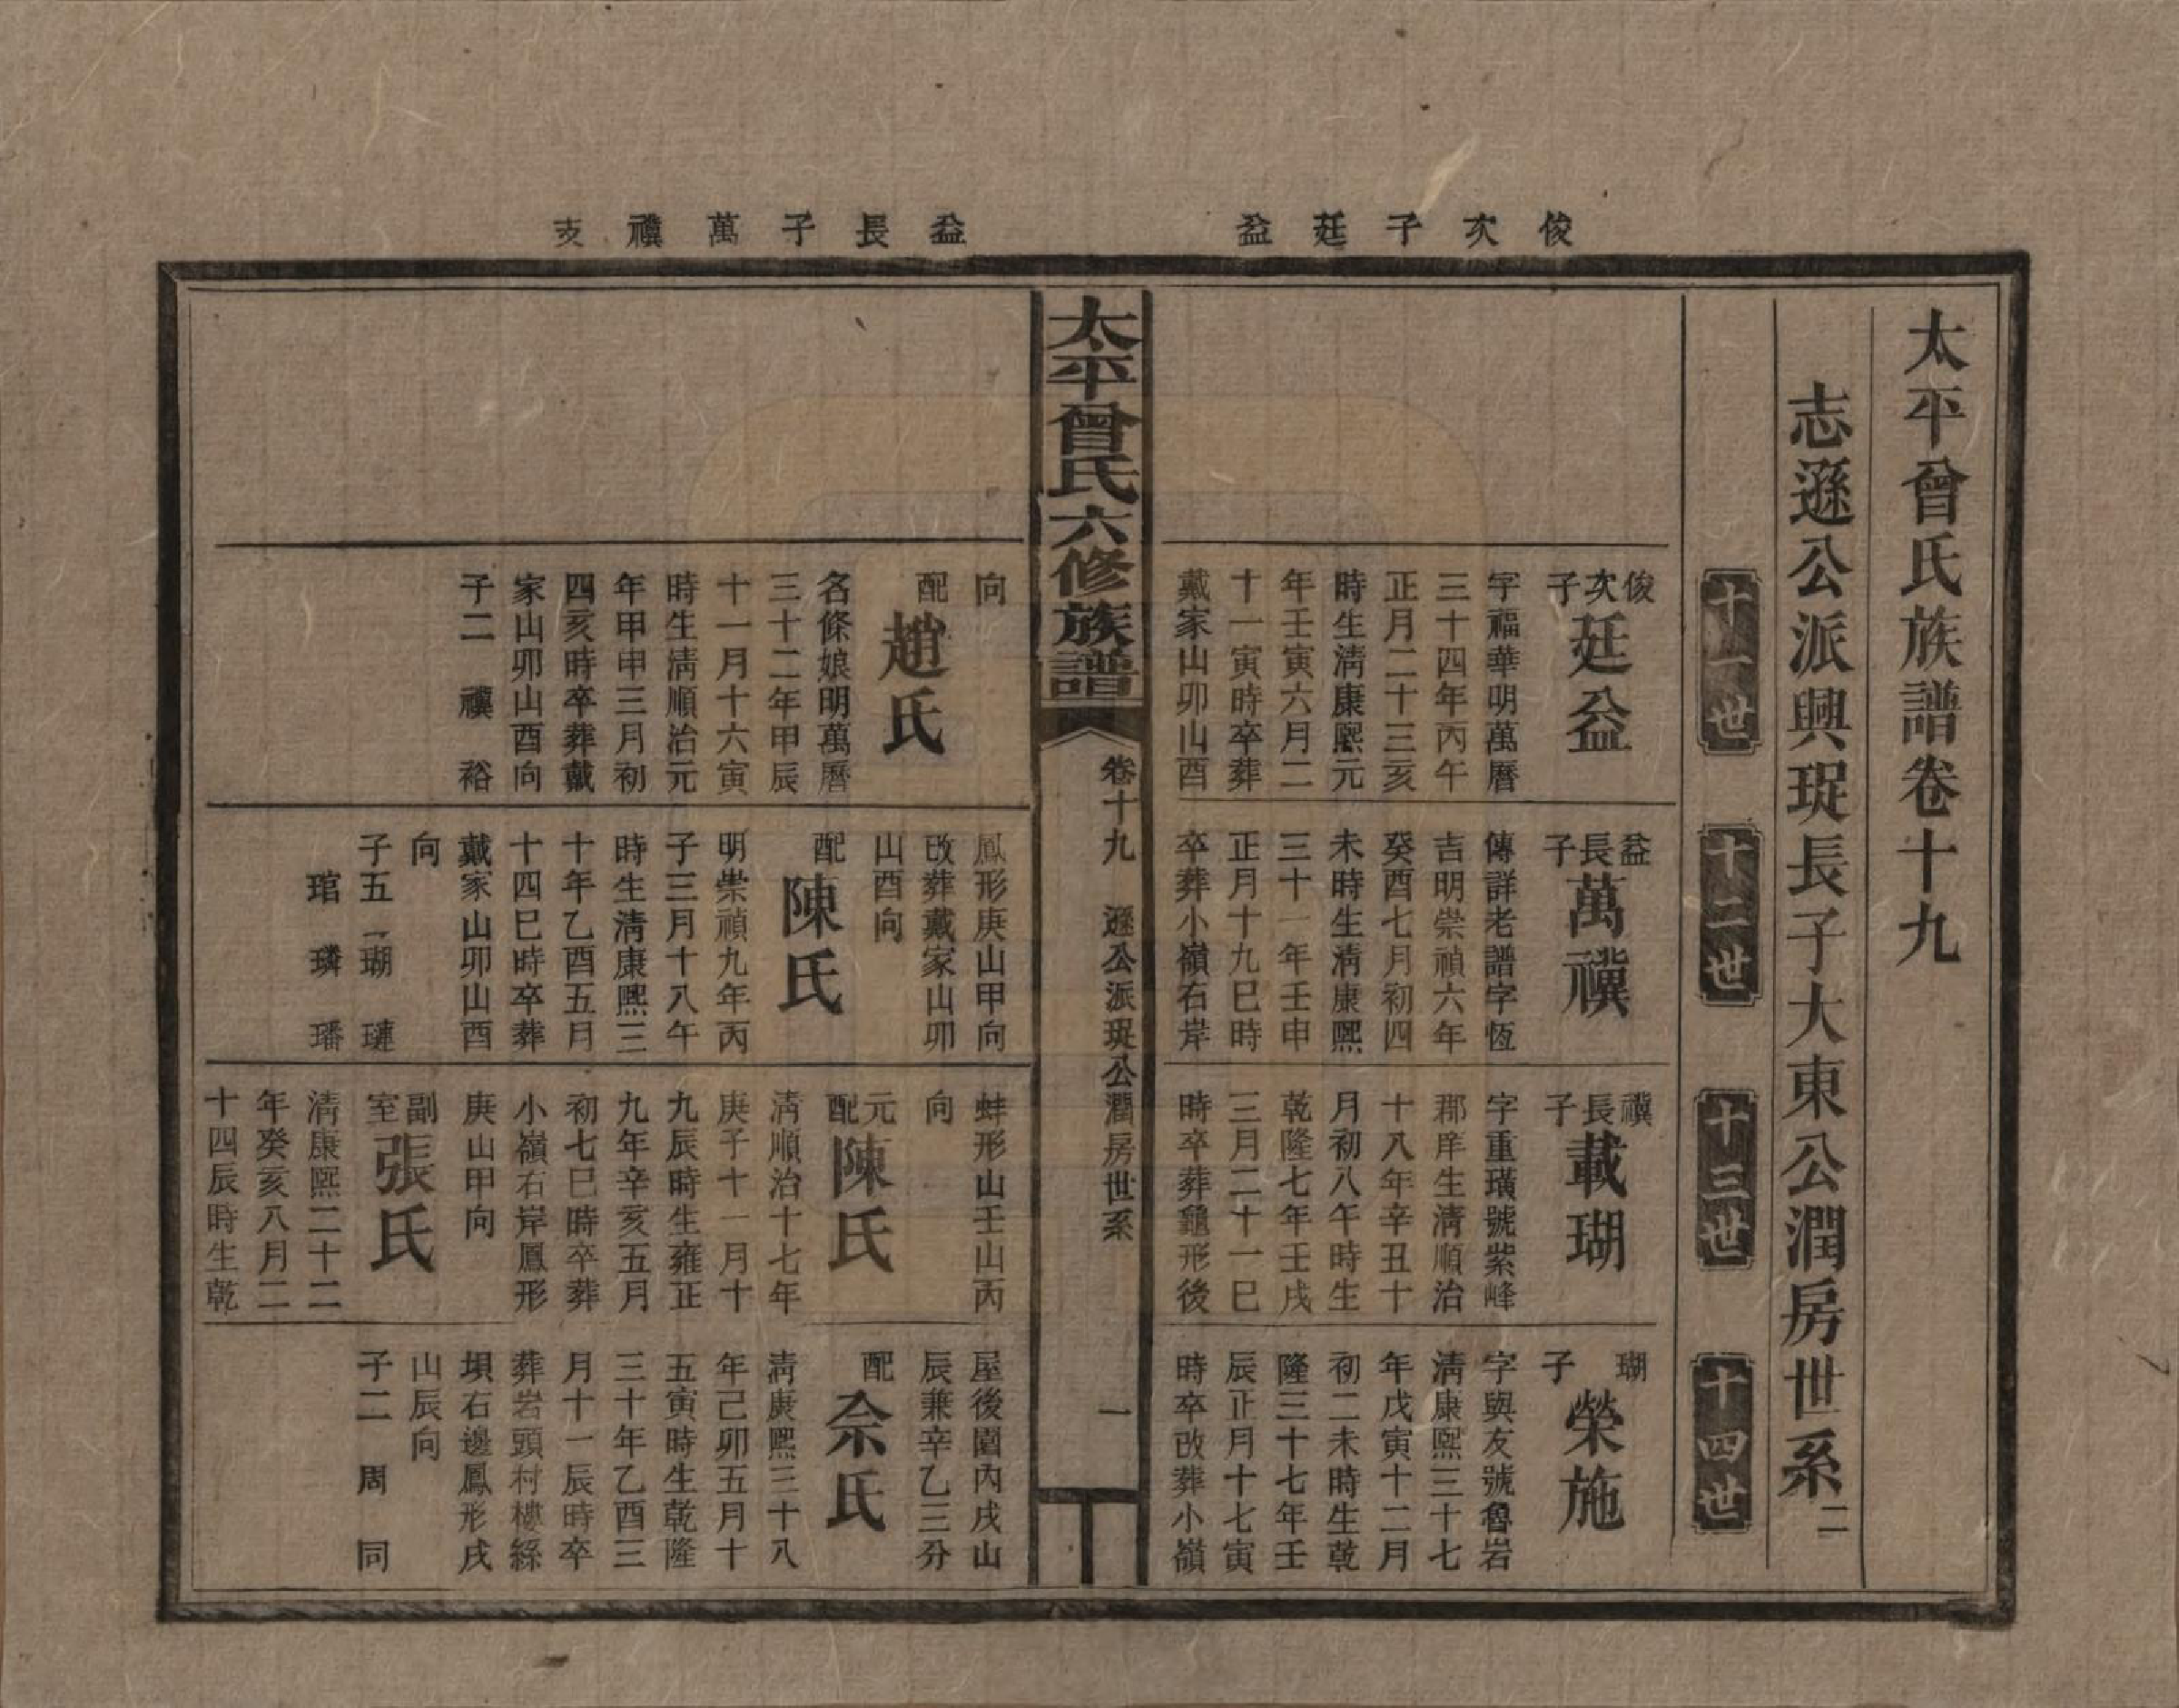 太平曾氏族譜卷十九
志遜公派興珽長子大東公潤房世系二
十一世
十二世
十三世
十四世
俊次子廷益
俊次子廷益
字福華明萬曆
三十四年丙午
正月二十三亥
時生淸康熙元
年壬寅六月二
十一寅時卒葬
戴家山卯山酉
益長子萬禩
傳詳老譜字恆
吉明崇禎六年
癸酉七月初四
未時生淸康熙
三十一年壬申
正月十九巳時
卒葬小嶺右岸
禩長子載瑚
字重璜號紫峰
郡庠生淸順治
十八年辛丑十
月初八午時生
乾隆七年壬戌
三月二十一巳
時卒葬龜形後
瑚子榮施
字與友號魯岩
淸康熙三十七
年戊寅十二月
初二未時生乾
隆三十七年壬
辰正月十七寅
時卒改葬小嶺
太平曾氏六修族譜
卷十九 遜公派珽公潤房世系
一
益長子萬禩支
向
配趙氏
名條娘明萬曆
三十二年甲辰
十一月十六寅
時生淸順治元
年甲申三月初
四亥時卒葬戴
家山卯山酉向
子二 禩 裕
鳳形庚山甲向
改葬戴家山卯
山酉向
配陳氏
明崇禎九年丙
子三月十八午
時生淸康熙三
十年乙酉五月
十四巳時卒葬
戴家山卯山酉
向
子五 瑚 璉
琯 璘 璠
蚌形山壬山丙
向
元配陳氏
淸順治十七年
庚子十一月十
九辰時生雍正
九年辛亥五月
初七巳時卒葬
小嶺右岸鳳形
庚山甲向
副室張氏
淸康熙二十二
年癸亥八月二
十四辰時生乾
屋後園內戌山
辰兼辛乙三分
配佘氏
淸康熙三十八
年己卯五月十
五寅時生乾隆
三十年乙酉三
月十一辰時卒
葬岩頭村樓絲
垻右邊鳳形戌
山辰向
子二 周 同